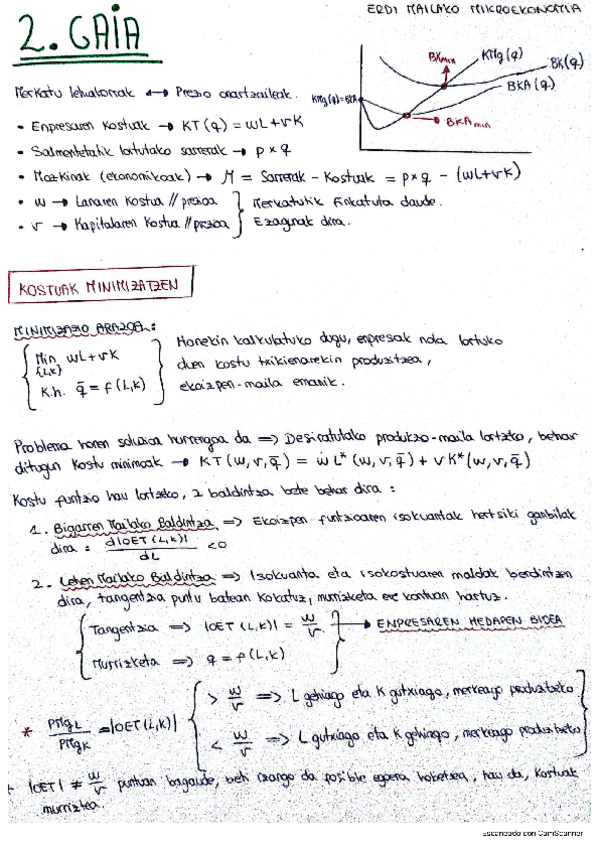 ERDI MAILAKO MIKROEKONOMIA
2. GAIA
BKmin
KMg(q)
BK(q)
BKA(q)
KMg(q)=BKA
BKAmin
Merkatu lehiakorrak ↔ Prezio onartzaileak.
• Enpresaren kostuak → KT(q) = wL + vK
• Salmentetatik lortutako sarrerak → p × q
• Mozkinak (ekonomikoak) → M = Sarrerak - Kostuak = p×q - (wL+vK)
• w → Lanaren kostua // prezioa
• v → Kapitalaren kostua // prezioa
Merkatutik finkatuta daude.
Ezagunak dira.
KOSTUAK MINIMIZATZEN
MINIMIZAZIO ARAZOA:
Min wL+vK
{L,K}
K.h. q̄ = f(L,K)
Honekin kalkulatuko dugu, enpresak nola lortuko
duen kostu txikienarekin produzitzea,
ekoizpen-maila emanik.
Problema horen soluzioa hurrengoa da => Desiratutako produkzio-maila lortzeko, behar
ditugun kostu minimoak → KT(w,v,q̄) = wL*(w,v,q̄) + vK*(w,v,q̄)
Kostu funtzio hau lortzeko, 2 baldintza bete behar dira:
1. Bigarren Mailako Baldintza => Ekoizpen funtzioaren isokuantak hertsiki ganbilak
dira: d|OET(L,K)|/dL < 0
2. Lehen Mailako Baldintza => Isokuanta eta isokostuaren maldak berdintzen
dira, tangentzia puntu batean kokatuz, murrizketa ere kontuan hartuz.
Tangentzia => |OET(L,K)| = w/v → ENPRESAREN HEDAPEN BIDEA
Murrizketa => q = f(L,K)
* PMgL/PMgK = |OET(L,K)|
> w/v => L gehiago eta K gutxiago, merkeago produzitzeko
< w/v => L gutxiago eta K gehiago, merkeago produzitzeko
|OET| ≠ w/v puntuan bagaude, beti izango da posible egoera hobetzea, hau da, kostuak
murriztea.
Escaneado con CamScanner